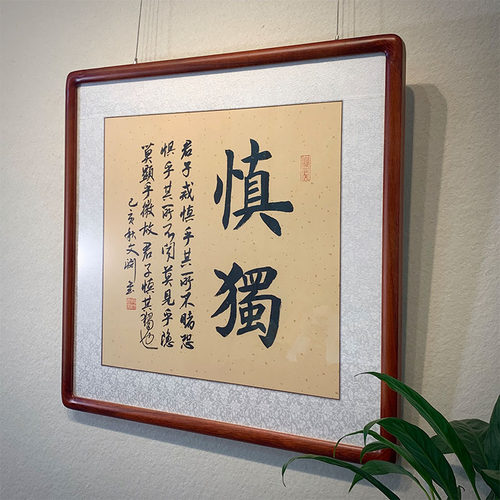 慎獨
君子戒慎乎其所不睹恐
惧乎其所不闻莫見乎隐
莫顯乎微故君子慎其獨也
己亥秋文渊书